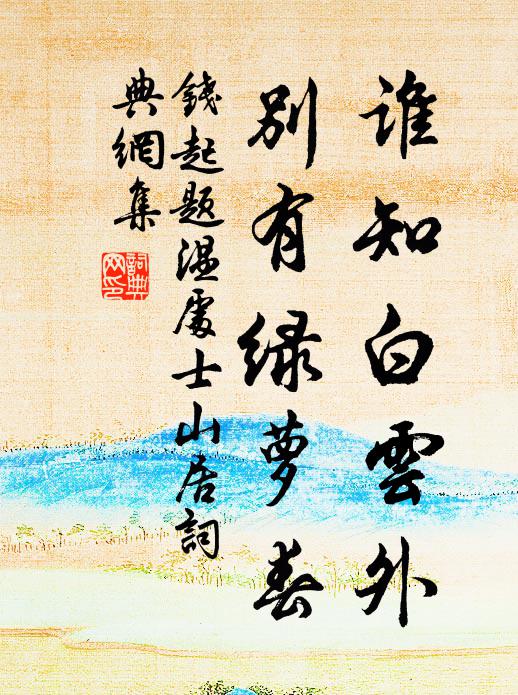 誰知白雲外
別有綠蘿春
錢起題温處士山居詞
典網集
詞典網印